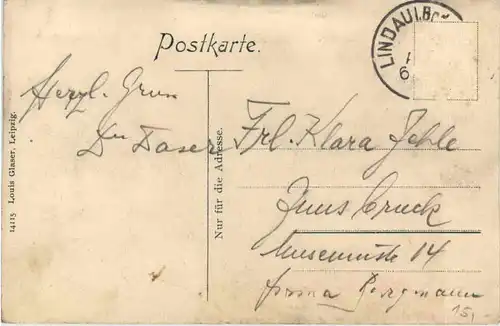 Postkarte.
LINDAU i. BO
6
Herzl. Gruss
Frl. Klara Jehle
Innsbruck
Museumstr 14
Firma Bergmann
Nur für die Adresse.
14115 Louis Glaser, Leipzig.
15,